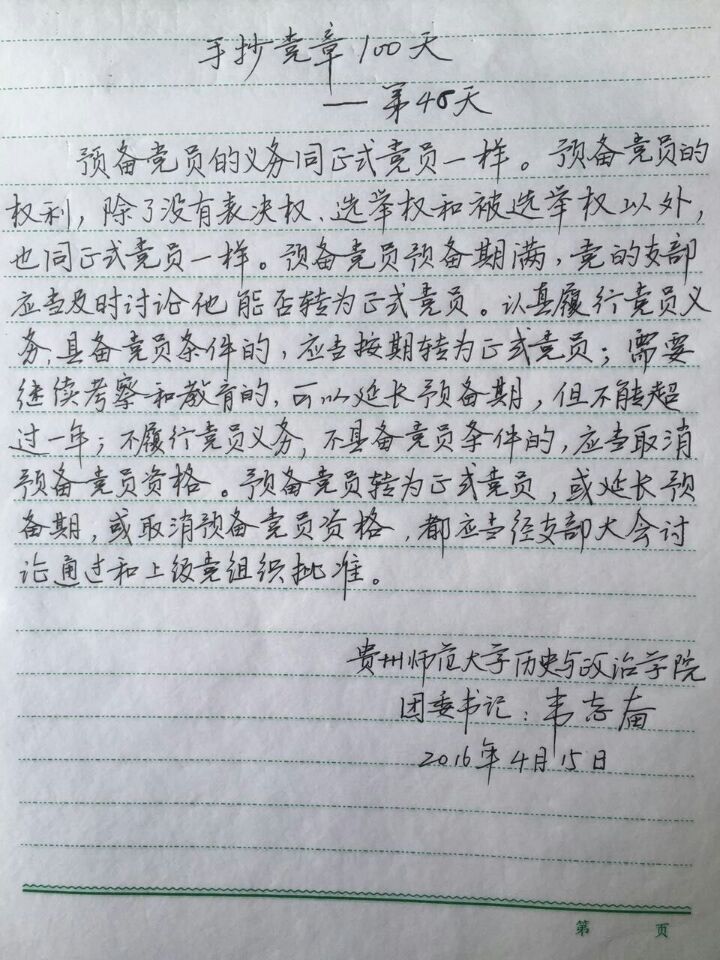 手抄党章100天
——第48天
预备党员的义务同正式党员一样。预备党员的
权利，除了没有表决权、选举权和被选举权以外，
也同正式党员一样。预备党员预备期满，党的支部
应当及时讨论他能否转为正式党员。认真履行党员义
务，具备党员条件的，应当按期转为正式党员；需要
继续考察和教育的，可以延长预备期，但不能超
过一年；不履行党员义务，不具备党员条件的，应当取消
预备党员资格。预备党员转为正式党员，或延长预
备期，或取消预备党员资格，都应当经支部大会讨
论通过和上级党组织批准。
贵州师范大学历史与政治学院
团委书记：韦志奋
2016年4月15日
第 页